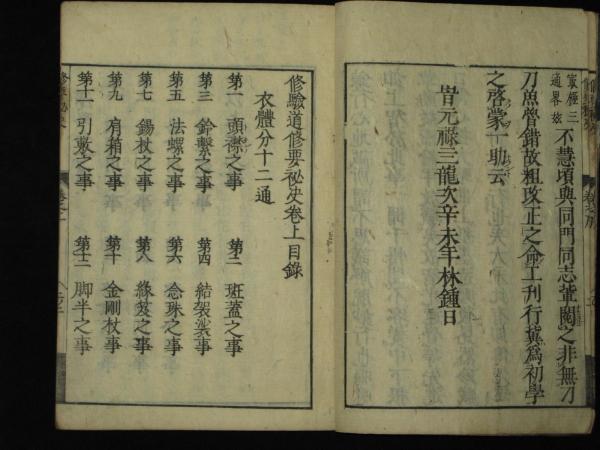 不慧頃與同門同志輩閲之非無刀
刀魚魯錯故粗攷正之命工刊行冀爲初學
之啓蒙一助云
旹元祿三龍次辛未年林鍾日
修驗道修要祕决卷上目錄
衣體分十二通
第一 頭襟之事 第二 斑蓋之事
第三 鈴繫之事 第四 結袈裟之事
第五 法螺之事 第六 念珠之事
第七 錫杖之事 第八 緣笈之事
第九 肩箱之事 第十 金剛杖之事
第十一 引敷之事 第十二 脚半之事